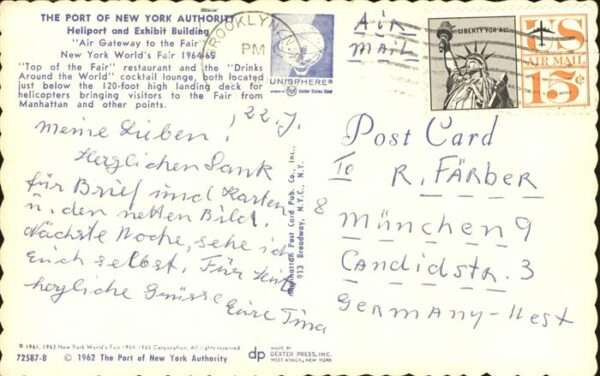 THE PORT OF NEW YORK AUTHORITY
Heliport and Exhibit Building
"Air Gateway to the Fair"
New York World's Fair 1964-65
"Top of the Fair" restaurant and the "Drinks
Around the World" cocktail lounge, both located
just below the 120-foot high landing deck for
helicopters bringing visitors to the Fair from
Manhattan and other points.
BROOKLYN
PM
UNISPHERE
Air
Mail
LIBERTY FOR ALL
US
AIR MAIL
15¢
22.7.
Meine Lieben!
Herzlichen Dank
für Brief und Karten
u. den netten Bild.
Nächste Woche, sehe ich
Euch selbst. Für heute
herzliche Grüsse Eure Tina
Manhattan Post Card Pub. Co., Inc.,
913 Broadway, N.Y.C., N.Y.
Post Card
To
R. FÄRBER
8
München 9
Candidstr. 3
Germany-West
© 1961, 1962 New York World's Fair 1964-1965 Corporation. All rights reserved
72587-B © 1962 The Port of New York Authority
dp
MADE BY
DEXTER PRESS, INC.
WEST NYACK, NEW YORK